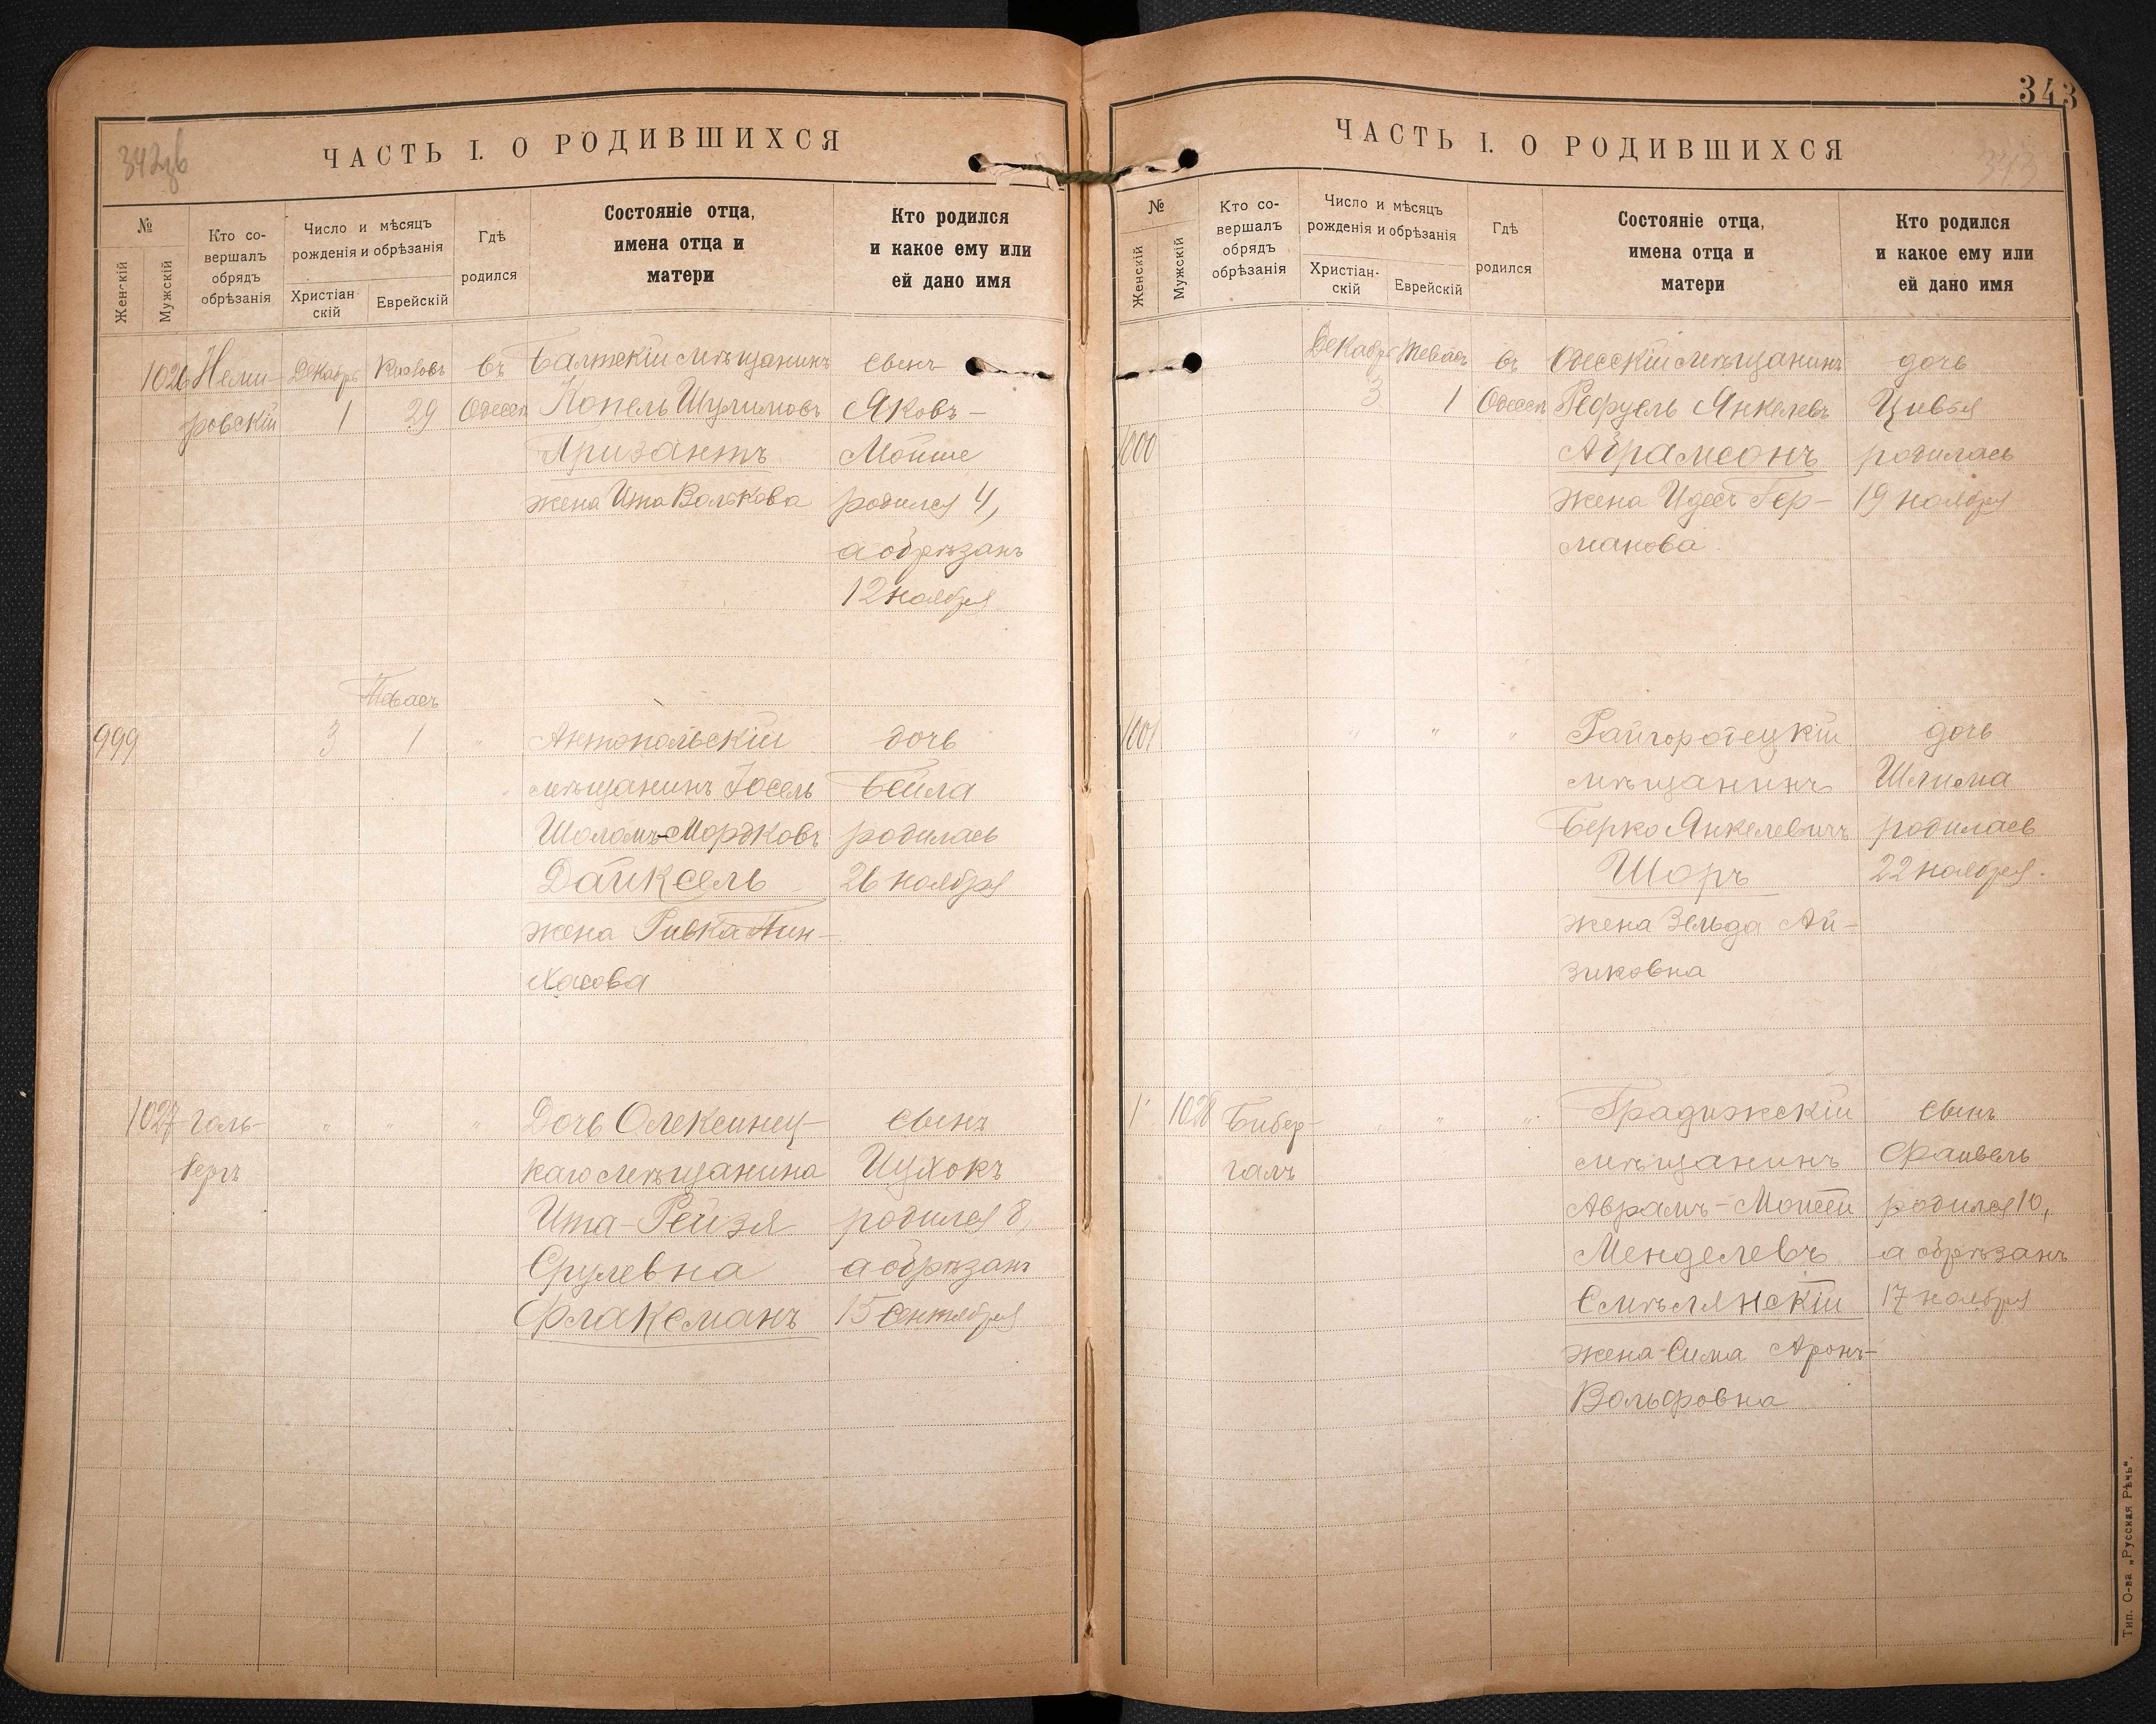 342об
ЧАСТЬ I. О РОДИВШИХСЯ
№
Женскій
Мужскій
Кто со-
вершалъ
обрядъ
обрѣзанія
Число и мѣсяцъ
рожденія и обрѣзанія
Христіан-
скій
Еврейскій
Гдѣ
родился
Состояніе отца,
имена отца и
матери
Кто родился
и какое ему или
ей дано имя
1026 Неми- Декабрь Кислевъ въ Балтскій мѣщанинъ сынъ
ровскій 1 29 Одессѣ Копель Шулимовъ Яковъ-
Призантъ Мойше
жена Ита Волькова родился 4,
а обрѣзанъ
12 ноября
Тевасъ
999 3 1 " Антопольскій дочь
мѣщанинъ Іосель Бейла
Шоломъ-Мордковъ родилась
Дайксель 26 ноября
жена Ривка Пин-
хасова
1027 Голь- " " " Дочь Олексинец- сынъ
бергъ каго мѣщанина Ицхокъ
Ита-Рейзя родился 8,
Срулевна а обрѣзанъ
Флаксманъ 15 сентября
343
ЧАСТЬ I. О РОДИВШИХСЯ
343
№
Женскій
Мужскій
Кто со-
вершалъ
обрядъ
обрѣзанія
Число и мѣсяцъ
рожденія и обрѣзанія
Христіан-
скій
Еврейскій
Гдѣ
родился
Состояніе отца,
имена отца и
матери
Кто родился
и какое ему или
ей дано имя
Декабрь Тевасъ въ Одесскій мѣщанинъ дочь
3 1 Одессѣ Янкелевъ Цивья
1000 Абрамсонъ родилась
жена Идесъ Гер- 19 ноября
манова
1001 " " " Райгородецкій дочь
мѣщанинъ Шлима
Берко Янкелевичъ родилась
Шоръ 22 ноября.
жена Зельда Ай-
зиковна
1028 Бибер- " " " Градижскій сынъ
галъ мѣщанинъ Файвель
Аврамъ-Мойсей родился 10,
Менделевъ а обрѣзанъ
Смѣлянскій 17 ноября
жена Сима Аронъ-
Вольфовна
Тип. О-ва „Русская Рѣчь".